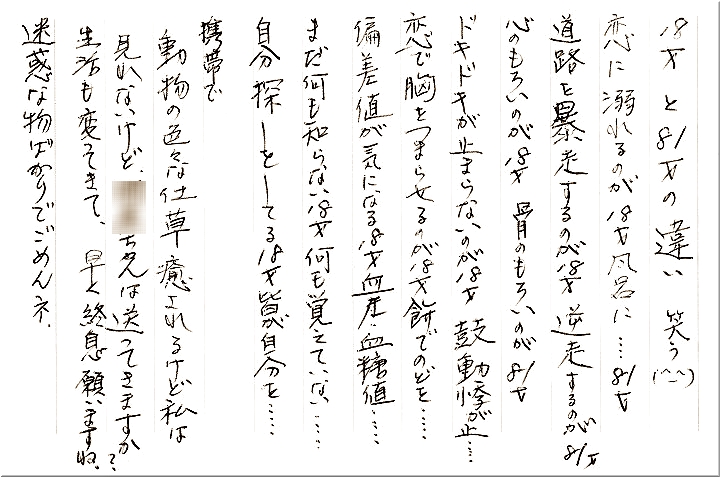 18才と81才の違い 笑う(^-^)
恋に溺れるのが18才風呂に……81才
道路を暴走するのが18才 逆走するのが81才
心のもろいのが18才 骨のもろいのが81才
ドキドキが止まらないのが18才 鼓動悸が止……
恋で胸をつまらせるのが18才餅でのどを……
偏差値が気になる18才血圧・血糖値……
まだ何も知らない18才何も覚えていない……
自分探しをしてる18才皆が自分を……
携帯で
動物の色々な仕草癒されるけど私は
見れないけど、ちゃんは送ってきますか?
生活も変ってきて、早く終息願いますね。
迷惑な物ばかりでごめんネ。